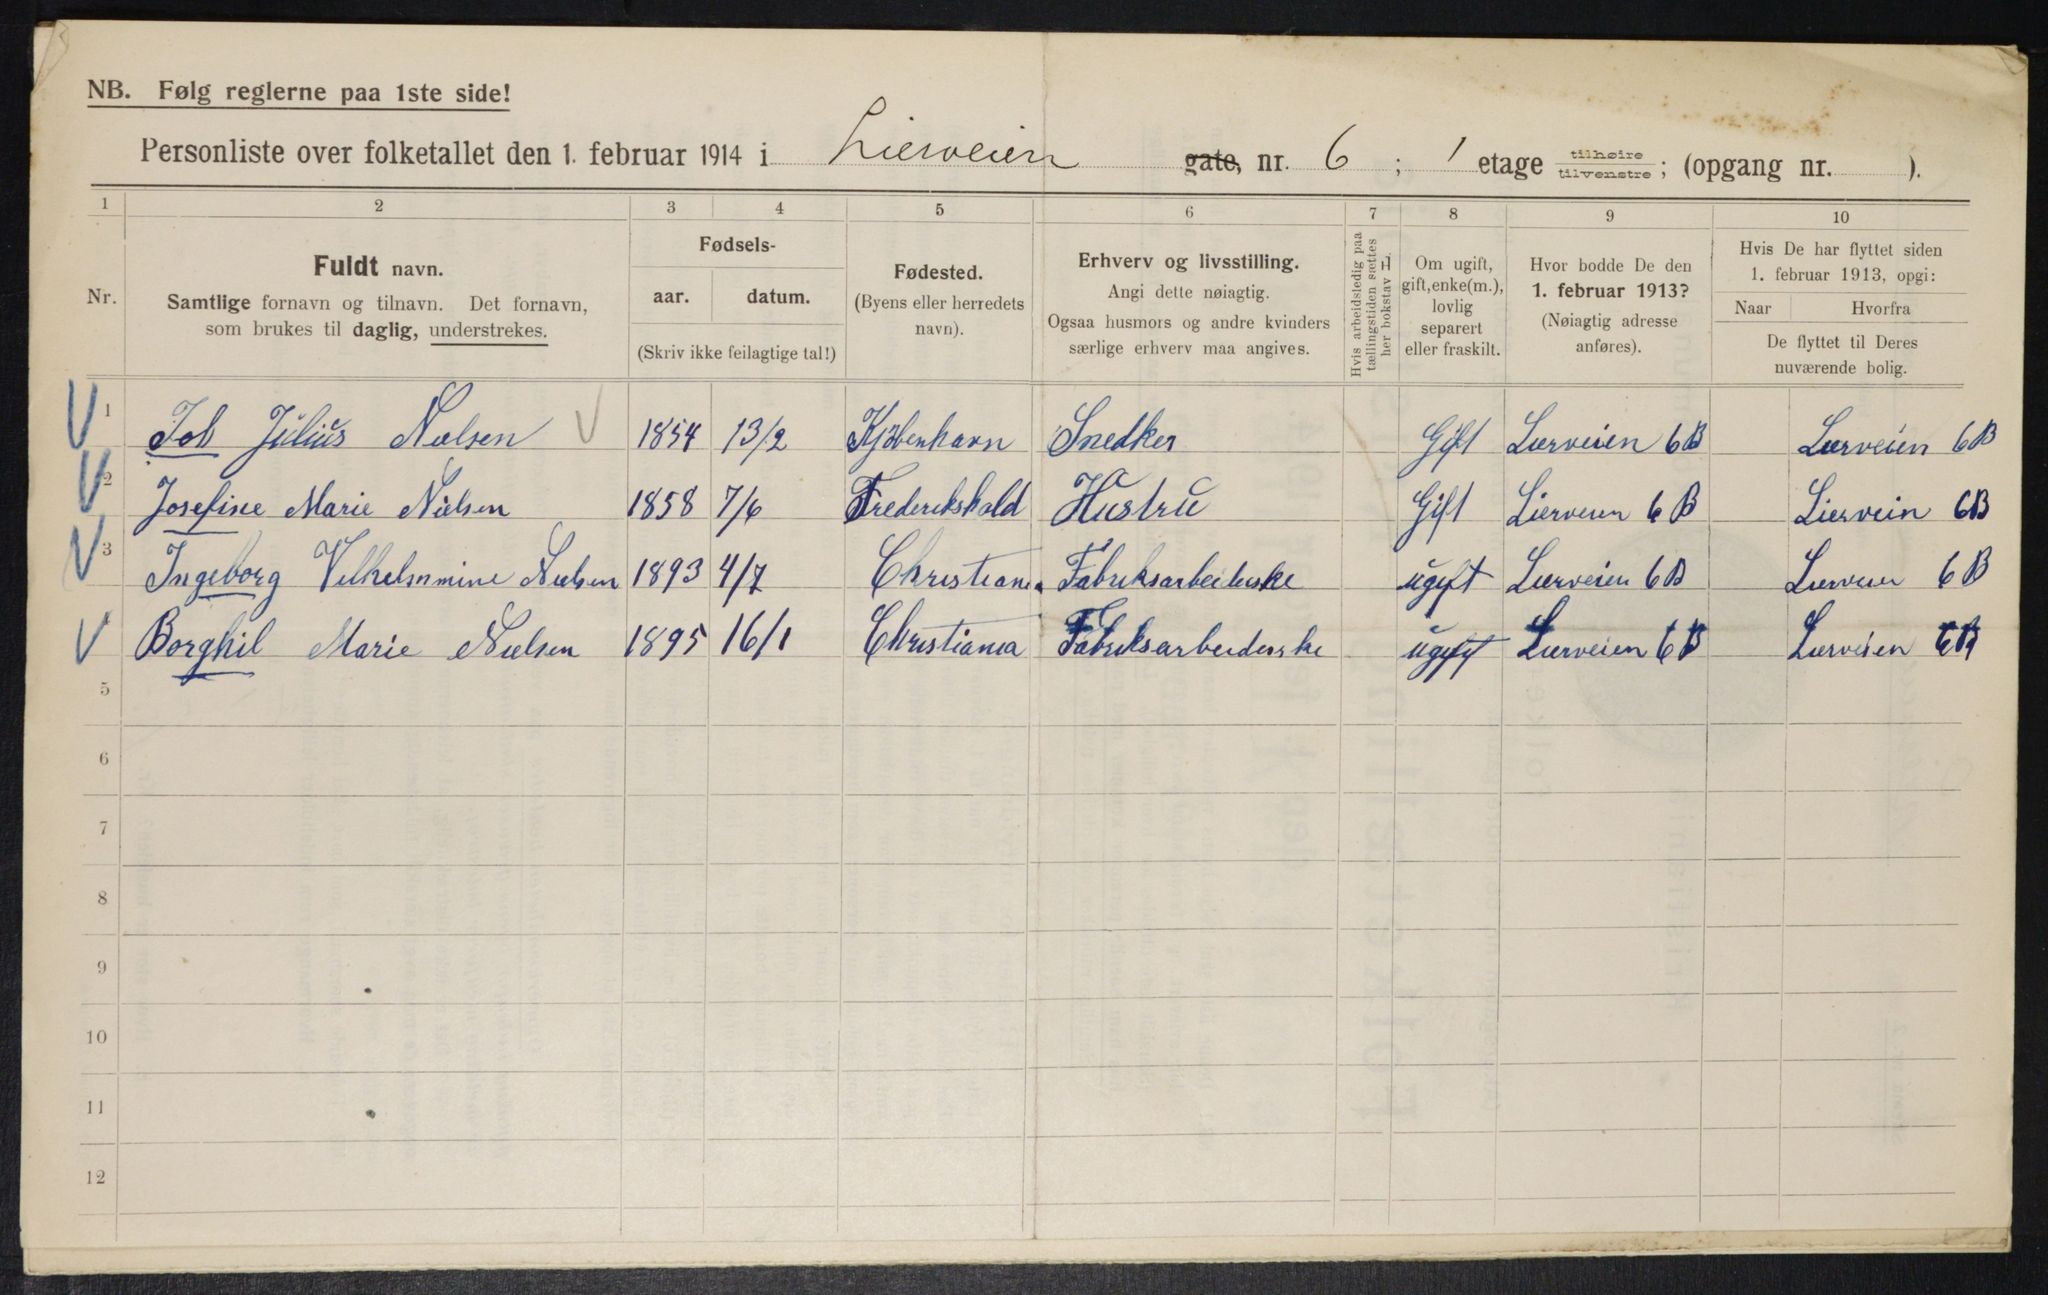 NB. Følg reglerne paa 1ste side!
Personliste over folketallet den 1. februar 1914 i Lierveien gate, nr. 6 ; 1 etage tilhøire tilvenstre ; (opgang nr. ).
1 2 3 4 5 6 7 8 9 10
Nr.
Fuldt navn.
Samtlige fornavn og tilnavn. Det fornavn,
som brukes til daglig, understrekes.
Fødsels-
aar. datum.
(Skriv ikke feilagtige tal!)
Fødested.
(Byens eller herredets
navn).
Erhverv og livsstilling.
Angi dette nøiagtig.
Ogsaa husmors og andre kvinders
særlige erhverv maa angives.
Hvis arbeidsledig paa
tællingstiden sættes
her bokstav L.
Om ugift,
gift, enke(m.),
lovlig
separert
eller fraskilt.
Hvor bodde De den
1. februar 1913?
(Nøiagtig adresse
anføres).
Hvis De har flyttet siden
1. februar 1913, opgi:
Naar Hvorfra
De flyttet til Deres
nuværende bolig.
1 Job Julius Nielsen 1854 13/2 Kjøbenhavn Snedker Gift Lierveien 6B Lierveien 6B
2 Josefine Marie Nielsen 1858 7/6 Frederikshald Hustru Gift Lierveien 6B Liervein 6B
3 Ingeborg Vilhelsmine Nielsen 1893 4/7 Christiania Fabriksarbeiderske ugift Lierveien 6B Lierveien 6B
Borghil Marie Nielsen 1895 16/1 Christiania Fabriksarbeiderske ugift Lierveien 6B Lierveien 6B
5
6
7
8
9
10
11
12